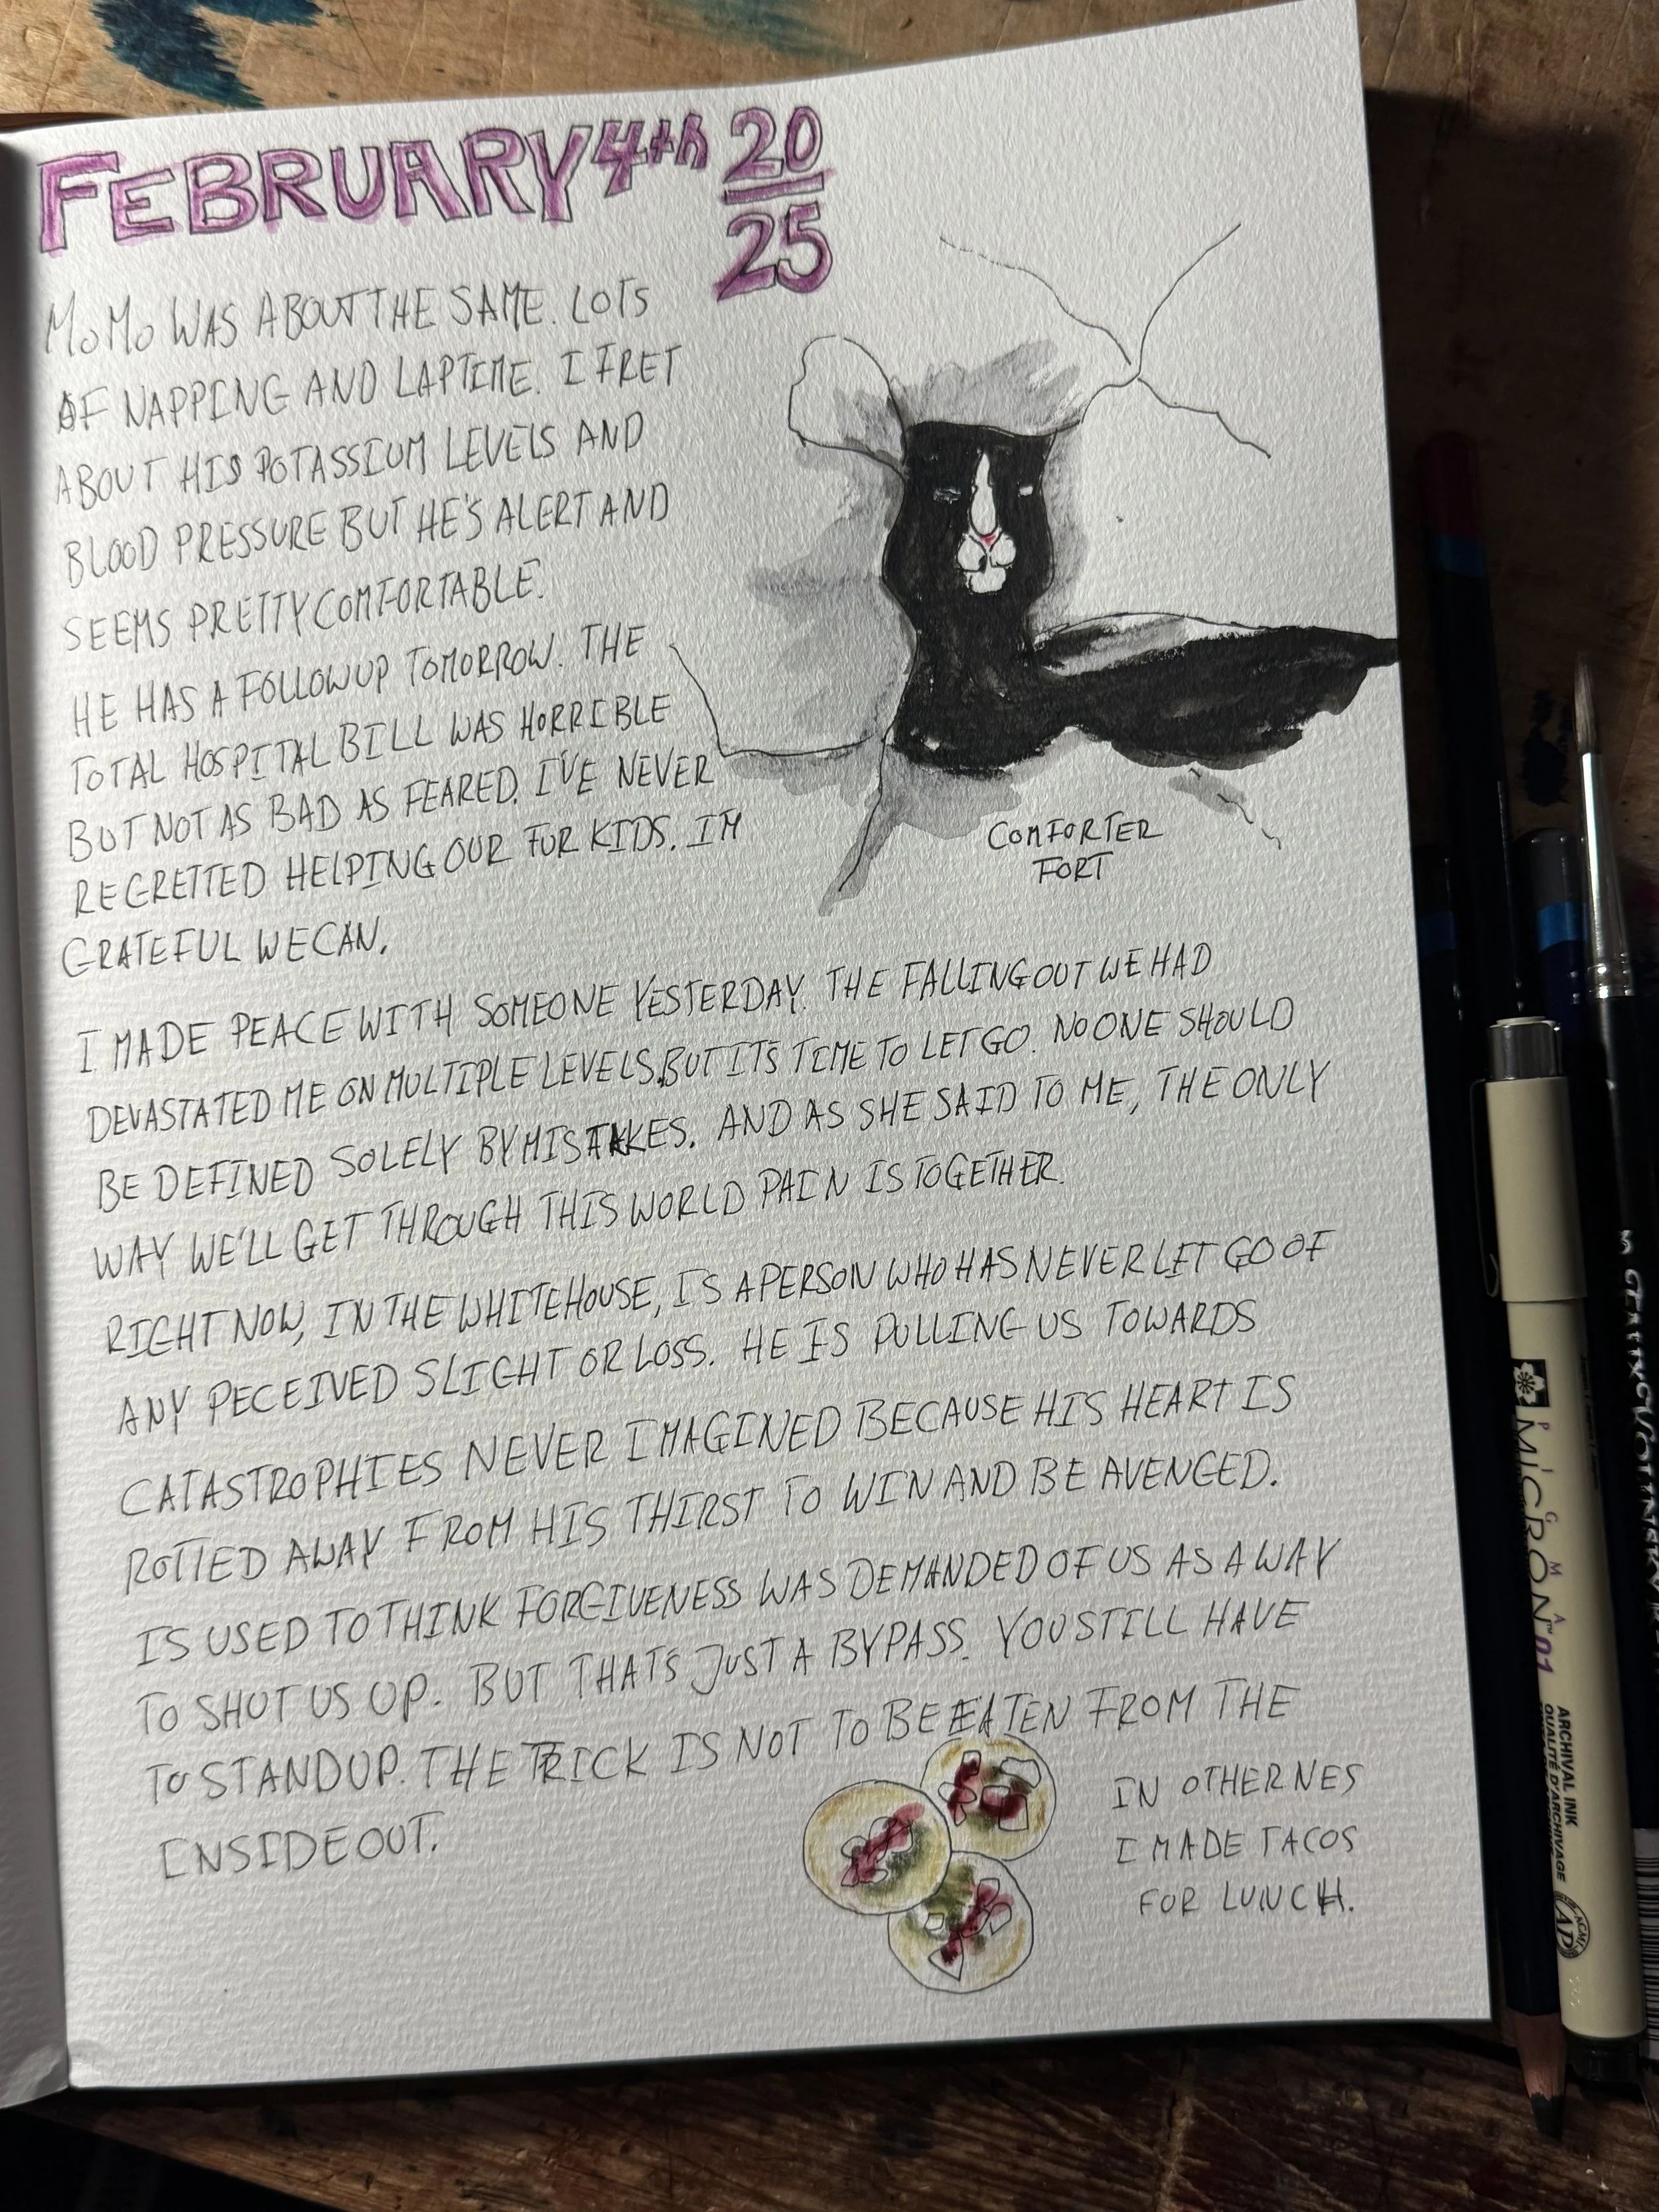 FEBRUARY 4th 20
25
MOMO WAS ABOUT THE SAME. LOTS
OF NAPPING AND LAPTIME. I FRET
ABOUT HIS POTASSIUM LEVELS AND
BLOOD PRESSURE BUT HE'S ALERT AND
SEEMS PRETTY COMFORTABLE.
HE HAS A FOLLOWUP TOMORROW. THE
TOTAL HOSPITAL BILL WAS HORRIBLE
BUT NOT AS BAD AS FEARED. I'VE NEVER
REGRETTED HELPING OUR FUR KIDS. I'M
GRATEFUL WE CAN.
COMFORTER
FORT
I MADE PEACE WITH SOMEONE YESTERDAY. THE FALLING OUT WE HAD
DEVASTATED ME ON MULTIPLE LEVELS, BUT IT'S TIME TO LET GO. NO ONE SHOULD
BE DEFINED SOLELY BY MISTAKES. AND AS SHE SAID TO ME, THE ONLY
WAY WE'LL GET THROUGH THIS WORLD PAIN IS TOGETHER.
RIGHT NOW, IN THE WHITEHOUSE, IS A PERSON WHO HAS NEVER LET GO OF
ANY PECEIVED SLIGHT OR LOSS. HE IS PULLING US TOWARDS
CATASTROPHIES NEVER IMAGINED BECAUSE HIS HEART IS
ROTTED AWAY FROM HIS THIRST TO WIN AND BE AVENGED.
IS USED TO THINK FORGIVENESS WAS DEMANDED OF US AS A WAY
TO SHUT US UP. BUT THAT'S JUST A BYPASS. YOU STILL HAVE
TO STAND UP. THE TRICK IS NOT TO BE EATEN FROM THE
INSIDE OUT.
IN OTHER NES
I MADE TACOS
FOR LUNCH.
PIGMA
MICRON™ 01
ARCHIVAL INK
QUALITÉ D'ARCHIVAGE
ACMI
AP